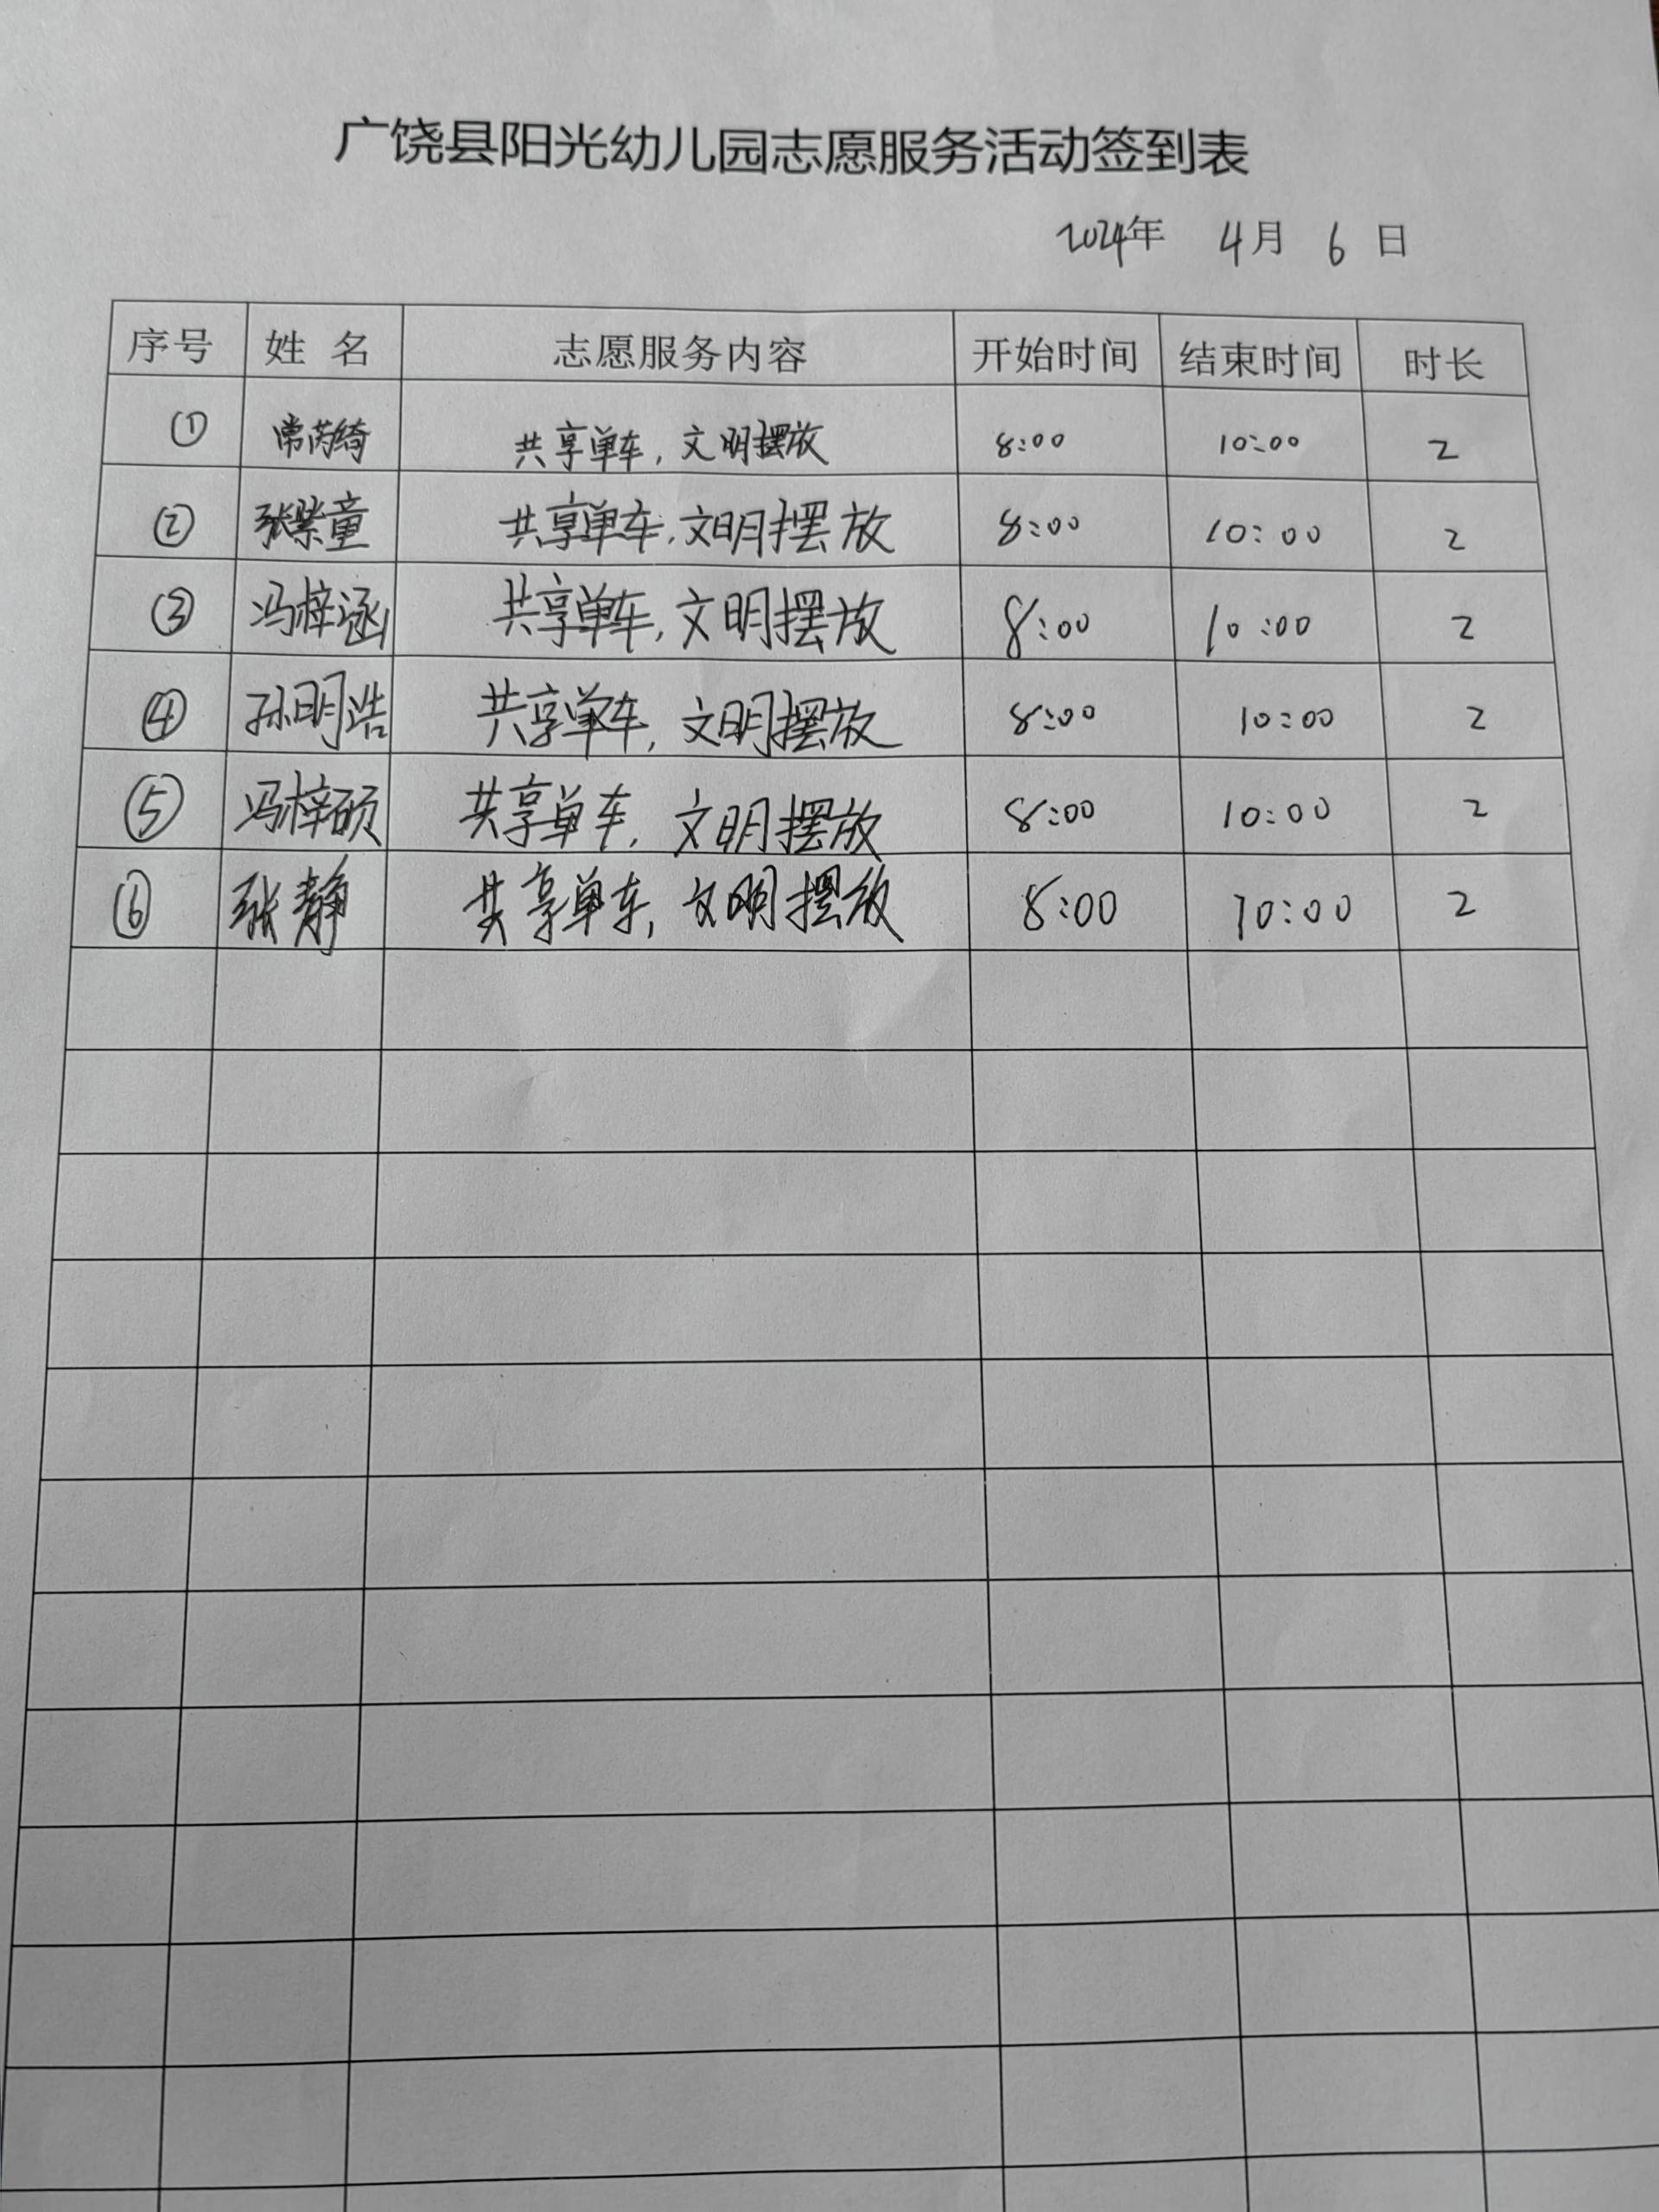 广饶县阳光幼儿园志愿服务活动签到表
2024年 4月 6日
序号 姓名 志愿服务内容 开始时间 结束时间 时长
① 常芮绮 共享单车,文明摆放 8:00 10:00 2
② 张紫童 共享单车,文明摆放 8:00 10:00 2
③ 冯梓涵 共享单车,文明摆放 8:00 10:00 2
④ 孙明浩 共享单车,文明摆放 8:00 10:00 2
⑤ 冯梓硕 共享单车,文明摆放 8:00 10:00 2
⑥ 张静 共享单车,文明摆放 8:00 10:00 2